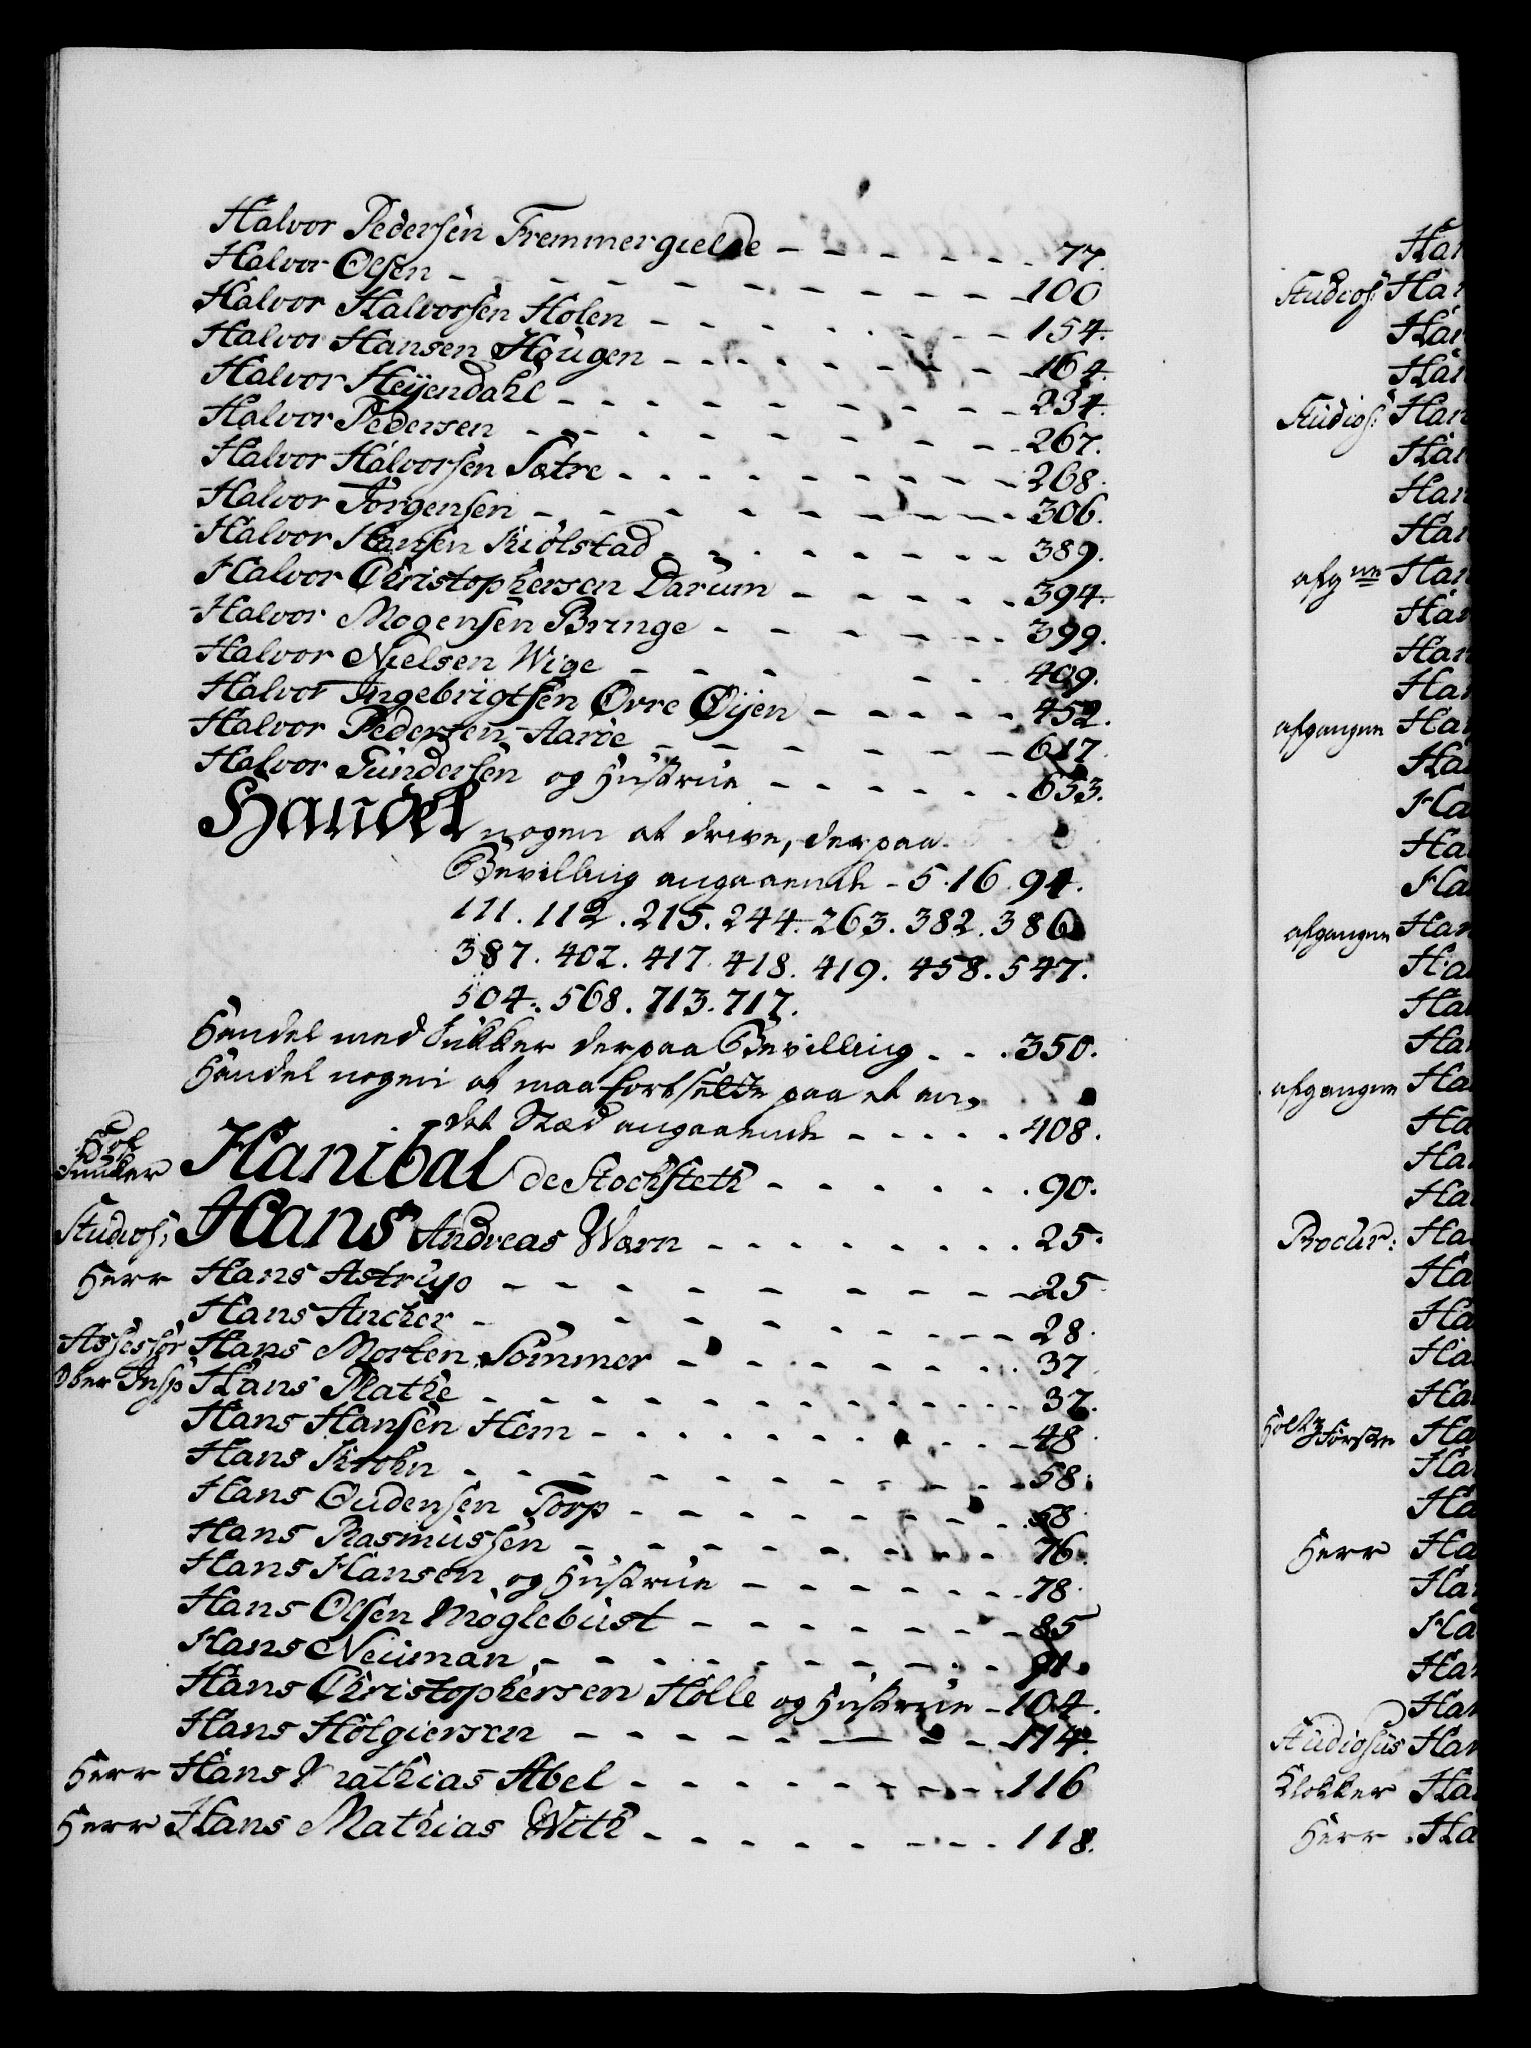 Halvor Pedersen Fremmergielde - - - - - - 77.
Halvor Olsen - - - - - - - - - - - 100
Halvor Halvorsen Holen - - - - - - - - 154.
Halvor Hansen Hougen - - - - - - - - - 164.
Halvor Heÿendahl - - - - - - - - - - 234.
Halvor Pedersen - - - - - - - - - - 267.
Halvor Halvorsen Sætre - - - - - - - - - 268.
Halvor Jorgensen - - - - - - - - - - 306.
Halvor Hansen Kiölstad - - - - - - - - 389.
Halvor Christophersen Darum - - - - - 394.
Halvor Mogensen Bringe - - - - - - - 399.
Halvor Nielsen Wige - - - - - 409.
Halvor Ingebrigtsen Øvre Øijen - - - - - 452.
Halvor Pedersen Aaroe - - - - - - - 617.
Halvor Gundersen og Hustrue - - - - - - 653.
Handel nogen at drive, derpaa
Bevilling angaaende - 5. 16. 94.
111. 112. 215. 244. 263. 382. 386
387. 402. 417. 418. 419. 458. 547.
504. 568. 713. 717.
Handel med Sukker derpaa Bevilling - - - 350.
Handel nogen at maa fortsette paa et an-
det Stæd angaaende - - - - - 408.
Hof
Junker Hanibal de Stochfleth - - - - - - - 90.
Studios: Hans Andreas Wærn - - - - - - - - - 25.
Herr Hans Astrup - - - - - - - - - - 25
Hans Ancher - - - - - - - - - - - 28.
Assessor Hans Morten Sommer - - - - - - - - 37
Ober Insp Hans Plathe - - - - - - - - - - - 37.
Hans Hansen Hem - - - - - - - - - - 48
Hans Krohn - - - - - - - - - - - 58.
Hans Oudensen Torp - - - - - - - - - 58.
Hans Rasmussen - - - - - - - - - 76.
Hans Hansen og Hustrue - - - - - - - 78.
Hans Olsen Møglebust - - - - - - - 85
Hans Neuman - - - - - - - - - - 91.
Hans Christophersen Holle og Hustrue - 104.
Hans Holgiersen - - - - - - - - 114.
Herr Hans Mathias Abel - - - - - - - - 116
Herr Hans Mathias With - - - - - - - - - 118.
Han
Studios: Han
Han
Han
Studios: Han
Han
Han
Han
afgne Han
Han
Han
Han
afgangne Han
Ha
Ha
Ha
Ha
afgangne Han
Ha
Han
Han
afgangne Ha
Ha
Ha
Ha
Procur: Ha
Ha
Ha
Ha
Ha
Ha
Ha
Ha
Herr Ha
Ha
Ha
Han
Han
Studiosus Han
Klokker Ha
Herr Ha